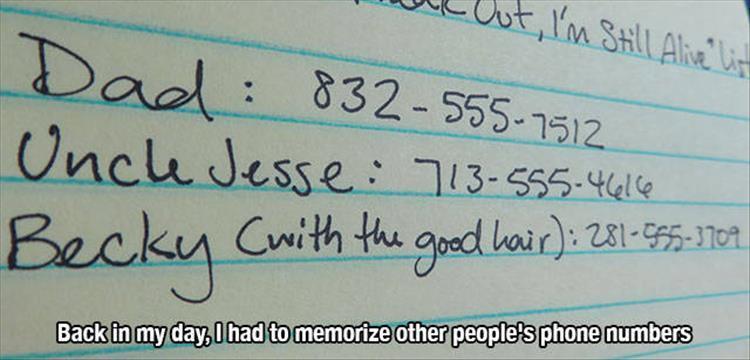 Out, I'm Still Alive" List
Dad: 832-555-7512
Uncle Jesse: 713-555-4616
Becky (with the good hair): 281-555-3709
Back in my day, I had to memorize other people's phone numbers